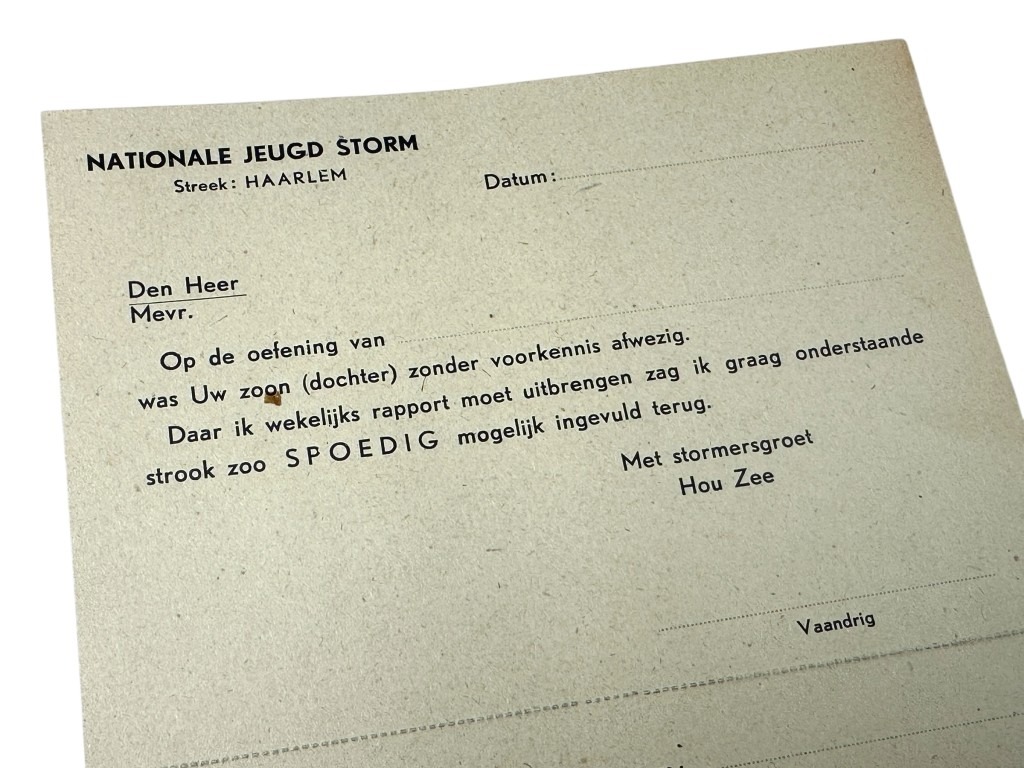 NATIONALE JEUGD STORM
Streek: HAARLEM
Datum:
Den Heer
Mevr.
Op de oefening van
was Uw zoon (dochter) zonder voorkennis afwezig.
Daar ik wekelijks rapport moet uitbrengen zag ik graag onderstaande
strook zoo SPOEDIG mogelijk ingevuld terug.
Met stormersgroet
Hou Zee
Vaandrig